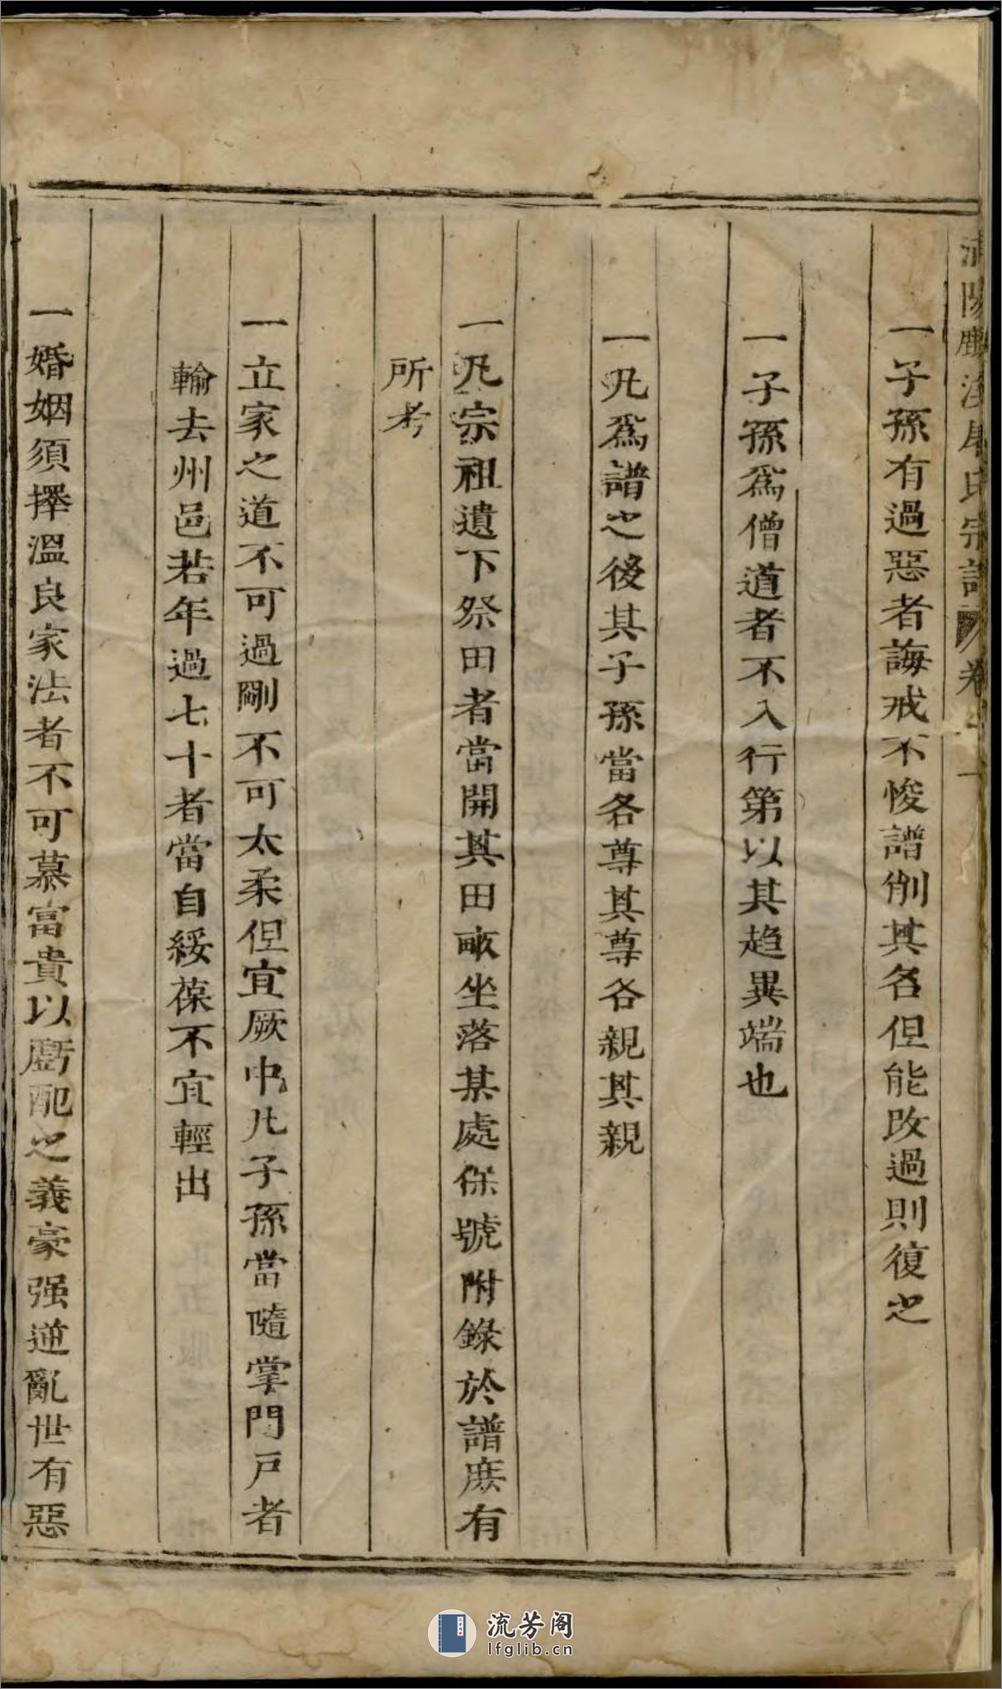 陽
氏宗譜
卷之
一子孫有過惡者誨戒不悛譜削其名但能改過則復之
一子孫爲僧道者不入行第以其趋異端也
一凡爲譜之後其子孫當各尊其尊各親其親
一凡宗祖遺下祭田者當開其田畝坐落某處保號附錄於譜庶有
所考
一立家之道不可過剛不可太柔但宜厥中凡子孫當隨掌門戸者
輪去州邑若年過七十者當自綏葆不宜輕出
一婚姻須擇溫良家法者不可慕富貴以虧配之義豪强逆亂世有惡
流芳阁
lfglib.cn